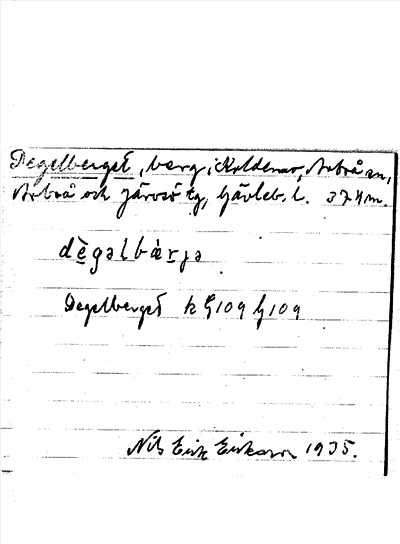 Degelberget, berg i Koldemo, Arbrå sn,
Arbrå och Järvsö tg, Gävleb. l. 374 m.
dègəlbærjə
Degelberget k G109 Gj109
Nils Erik Eriksson 1935.